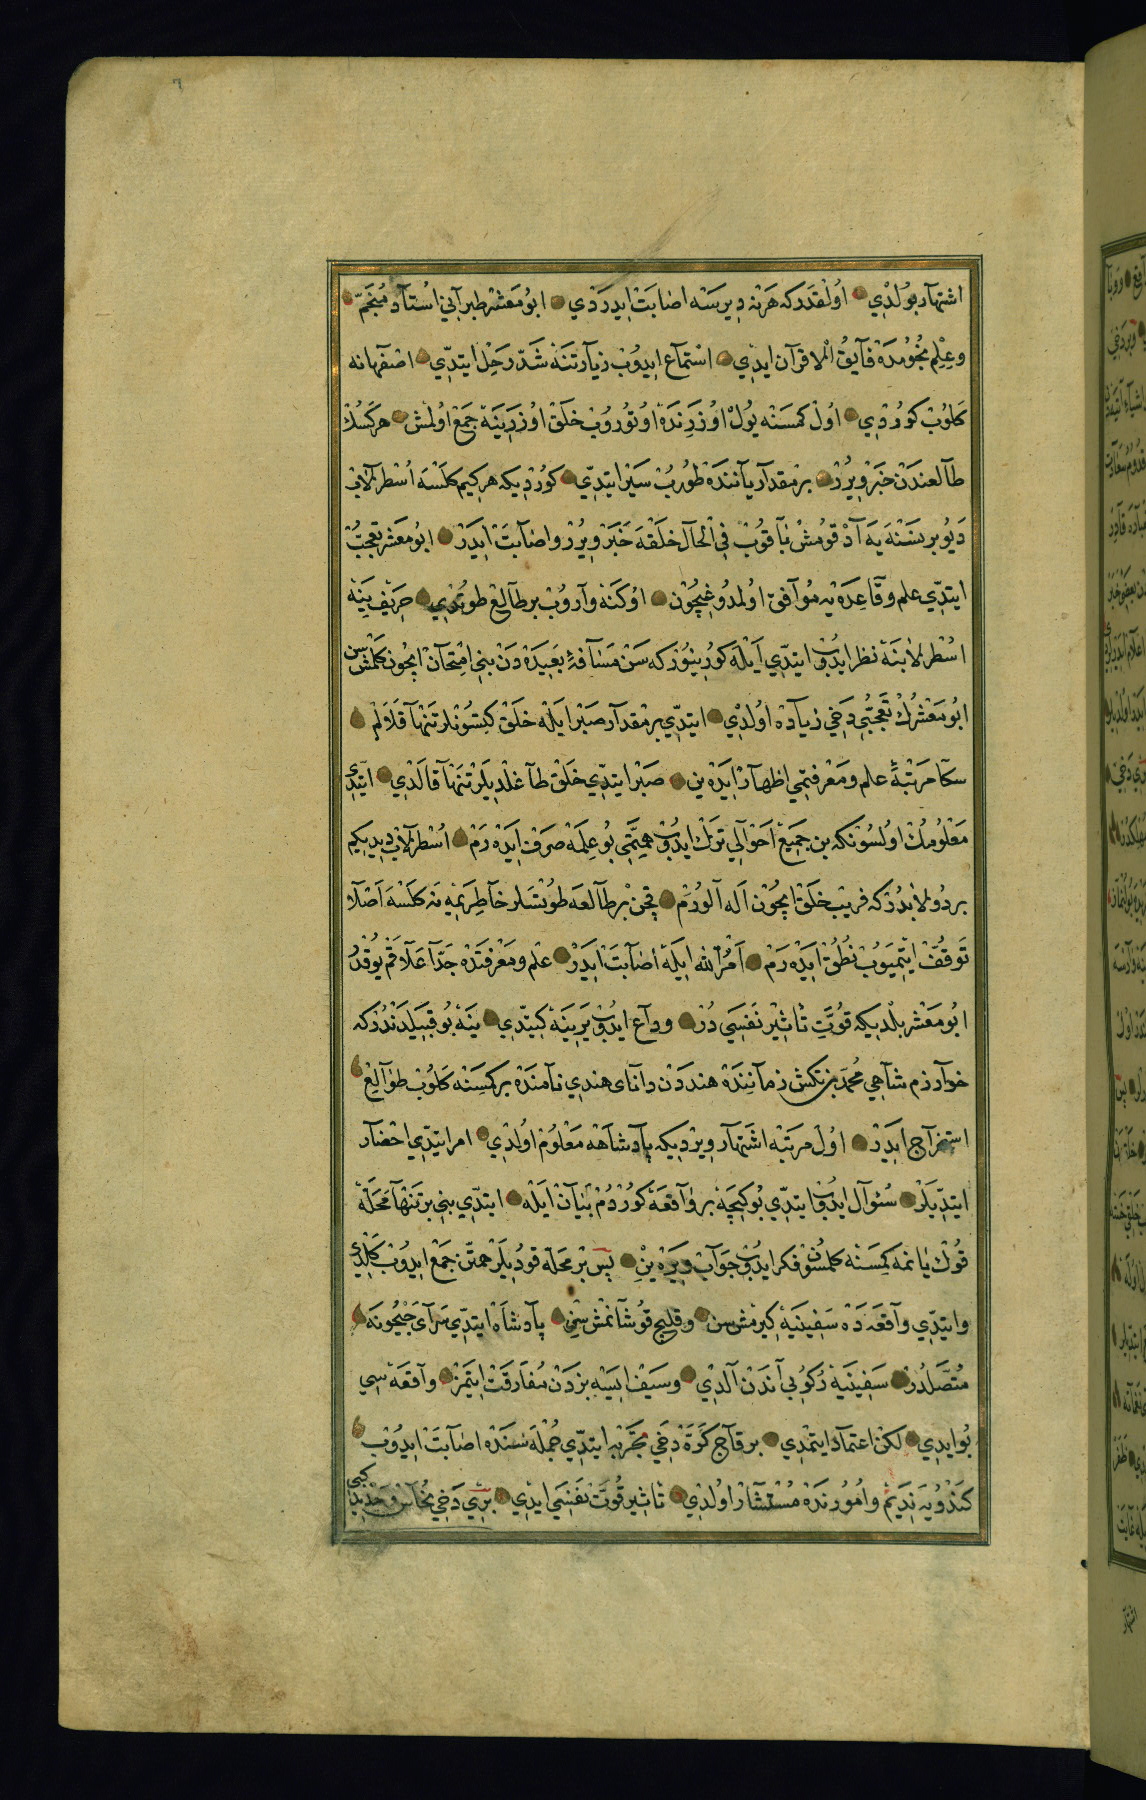 اشتهار بولدي اولقدر که هرنه ديرسه اصابت ايدردي ابو معشر طبراني استاد منجم
وعلم نجومده فايق الاقران ايدي استماع ايدوب زيارتنه شد رحل ايتدي اصفهانه
کلوب کوردي اول کمسنه يول اوزرنده اوتوروب خلق اوزرينه جمع اولمش هرکسک
طالعندن خبر ويرر بر مقدار ياننده طورب سير ايتدي کورديکه هر کيم کلسه اسطرلاب
ديو بر نسنه يه آد قومش باقوب في الحال خلقه خبر ويرر واصابت ايدر ابو معشر تعجب
ايتدي علم وقاعده يه موافق اولمدوغيچون اوکنه واروب بر طالع طوتدي حريف ينه
اسطرلابنه نظر ايدوب ايتدي ايله کورينور که سن مسافهٔ بعيده دن بني امتحان ايچون کلمش سن
ابو معشرک تعجبي دخي زياده اولدي ايتدي بر مقدار صبر ايله خلق کتسونلر تنها قلالم
سکا مرتبهٔ علم ومعرفتمي اظهار ايده ين صبر ايتدي خلق طاغلديلر تنها قالدي ايتدي
معلومک اولسونکه بن جميع احوالي ترک ايدوب همتمي بو علمه صرف ايده رم اسطرلاب ديديکم
بر دولابدر که فريب خلق ايچون اله الورم قچن بر طالعه طوتسلر خاطريمه نه کلسه اصلا
توقف ايتميوب نطق ايده رم امر الله ايله اصابت ايدر علم ومعرفتده جدا علاقم يوقدر
ابو معشر بلديکه قوت تاثير نفسي در وداع ايدوب يرينه کيتدي ينه بو قبيلدندر که
خوارزم شاهي محمد بن تکش زماننده هنددن داناي هندي نامنده بر کمسنه کلوب طوالع
استخراج ايدر اول مرتبه اشتهار ويرديکه پادشاهه معلوم اولدي امر ايتدي احضار
ايتديلر سئوال ايدوب ايتدي بو کيجه بر واقعه کوردم بيان ايله ايتدي بني بر تنها محله
قوک يانمه کمسنه کلمسون فکر ايدوب جواب ويره ين پس بر محله قوديلر همتن جمع ايدوب کلدي
وايتدي واقعه ده سفينيه کيرمش سن وقلج قوشانمش سن پادشاه ايتدي سراي جيحونه
متصلدر سفينيه رکوبي آندن آلدي وسيف ايسه بزدن مفارقت ايتمز واقعه سي
بو ايدي لکن اعتماد ايتمدي بر قاج کره دخي تجربه ايتدي جمله سنده اصابت ايدوب
کندويه نديم وامورنده مستشار اولدي تاثير قوت نفسي ايدي بري دخي